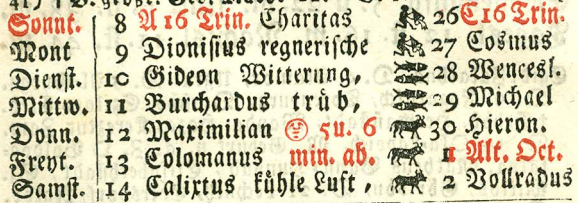 Sonnt. 8 A 16 Trin. Charitas 26 C 16 Trin.
Mont 9 Dionisius regnerische 27 Cosmus
Dienst. 10 Gideon Witterung, 28 Wencesl.
Mittw. 11 Burchardus trüb, 29 Michael
Donn. 12 Maximilian 5 u. 6 30 Hieron.
Freyt. 13 Colomanus min. ab. 1 Alt. Oct.
Samst. 14 Calixtus kühle Luft, 2 Vollradus